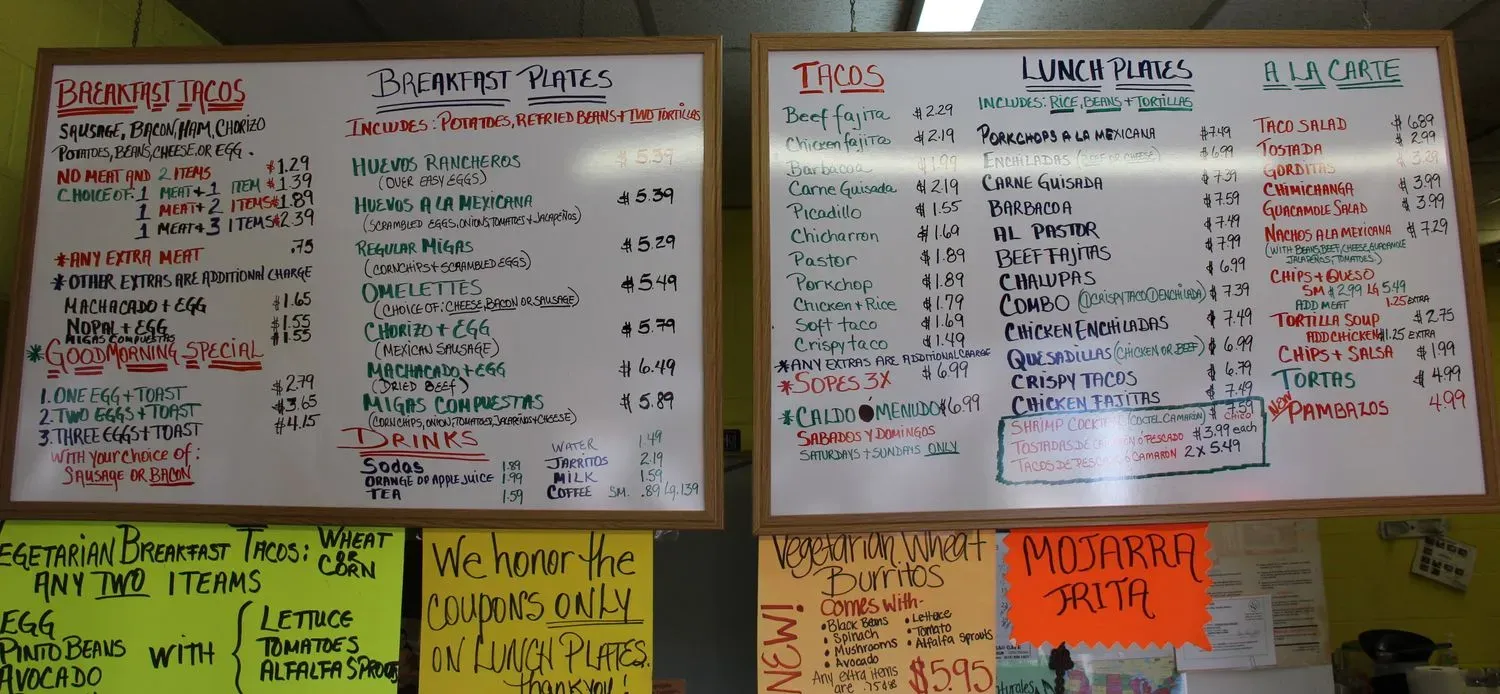 BREAKFAST TACOS
SAUSAGE, BACON, HAM, CHORIZO
POTATOES, BEANS, CHEESE, OR EGG.
NO MEAT AND 2 ITEMS $1.29
CHOICE OF: 1 MEAT + 1 ITEM $1.39
1 MEAT + 2 ITEMS $1.89
1 MEAT + 3 ITEMS $2.39
*ANY EXTRA MEAT .75
*OTHER EXTRAS ARE ADDITIONAL CHARGE
MACHACADO + EGG $1.65
NOPAL + EGG $1.55
MIGAS COMPUESTAS $1.55
*GOOD MORNING SPECIAL
1. ONE EGG + TOAST $2.79
2. TWO EGGS + TOAST $3.65
3. THREE EGGS + TOAST $4.15
WITH YOUR CHOICE OF:
SAUSAGE OR BACON
BREAKFAST PLATES
INCLUDES: POTATOES, REFRIED BEANS + TWO TORTILLAS
HUEVOS RANCHEROS $5.39
(OVER EASY EGGS)
HUEVOS A LA MEXICANA $5.39
(SCRAMBLED EGGS, ONIONS, TOMATOES + JALAPEÑOS)
REGULAR MIGAS $5.29
(CORNCHIPS + SCRAMBLED EGGS)
OMELETTES $5.49
(CHOICE OF: CHEESE, BACON OR SAUSAGE)
CHORIZO + EGG $5.79
(MEXICAN SAUSAGE)
MACHACADO + EGG $6.49
(DRIED BEEF)
MIGAS COMPUESTAS $5.89
(CORNCHIPS, ONION, TOMATOES, JALAPEÑOS + CHEESE)
DRINKS
SODAS 1.89
ORANGE OR APPLE JUICE 1.99
TEA 1.59
WATER 1.49
JARRITOS 2.19
MILK 1.59
COFFEE SM. .89 LG. 1.39
TACOS
Beef fajita $2.29
Chicken fajitas $2.19
Barbacoa $1.99
Carne Guisada $2.19
Picadillo $1.55
Chicharron $1.69
Pastor $1.89
Porkchop $1.89
Chicken + Rice $1.79
Soft taco $1.69
Crispy taco $1.49
*ANY EXTRAS ARE ADDITIONAL CHARGE
*SOPES 3X $6.99
*CALDO Ó MENUDO $6.99
SABADOS Y DOMINGOS
SATURDAYS + SUNDAYS ONLY
LUNCH PLATES
INCLUDES: RICE, BEANS + TORTILLAS
PORKCHOPS A LA MEXICANA $7.49
ENCHILADAS (BEEF OR CHEESE) $6.99
CARNE GUISADA $7.39
BARBACOA $7.59
AL PASTOR $7.49
BEEF FAJITAS $7.99
CHALUPAS $6.99
COMBO (1 CRISPY TACO 1 ENCHILADA) $7.39
CHICKEN ENCHILADAS $7.49
QUESADILLAS (CHICKEN OR BEEF) $6.99
CRISPY TACOS $6.79
CHICKEN FAJITAS $7.49
SHRIMP COCKTEL (COCTEL CAMARON) CHICO $7.59
TOSTADAS DE CAMARON O PESCADO $3.99 each
TACOS DE PESCADO Ó CAMARON 2 X 5.49
A LA CARTE
TACO SALAD $6.89
TOSTADA $2.99
GORDITAS $3.29
CHIMICHANGA $3.99
GUACAMOLE SALAD $3.99
NACHOS A LA MEXICANA $7.29
(WITH BEANS, BEEF, CHEESE, GUACAMOLE
JALAPEÑOS, TOMATOES)
CHIPS + QUESO
SM $2.99 LG 5.49
ADD MEAT 1.25 EXTRA
TORTILLA SOUP $2.75
ADD CHICKEN $1.25 EXTRA
CHIPS + SALSA $1.99
TORTAS $4.99
NEW PAMBAZOS 4.99
EGETARIAN BREAKFAST TACOS: WHEAT OR CORN
ANY TWO ITEAMS
EGG
PINTO BEANS
AVOCADO
WITH
LETTUCE
TOMATOES
ALFALFA SPROUTS
We honor the
COUPONS ONLY
ON LUNCH PLATES.
thank you!
Vegetarian Wheat
Burritos
NEW!
COMES WITH-
• Black Beans
• Spinach
• Mushrooms
• Avocado
• Lettuce
• Tomato
• Alfalfa Sprouts
Any extra items
are .75¢
$5.95
MOJARRA
FRITA